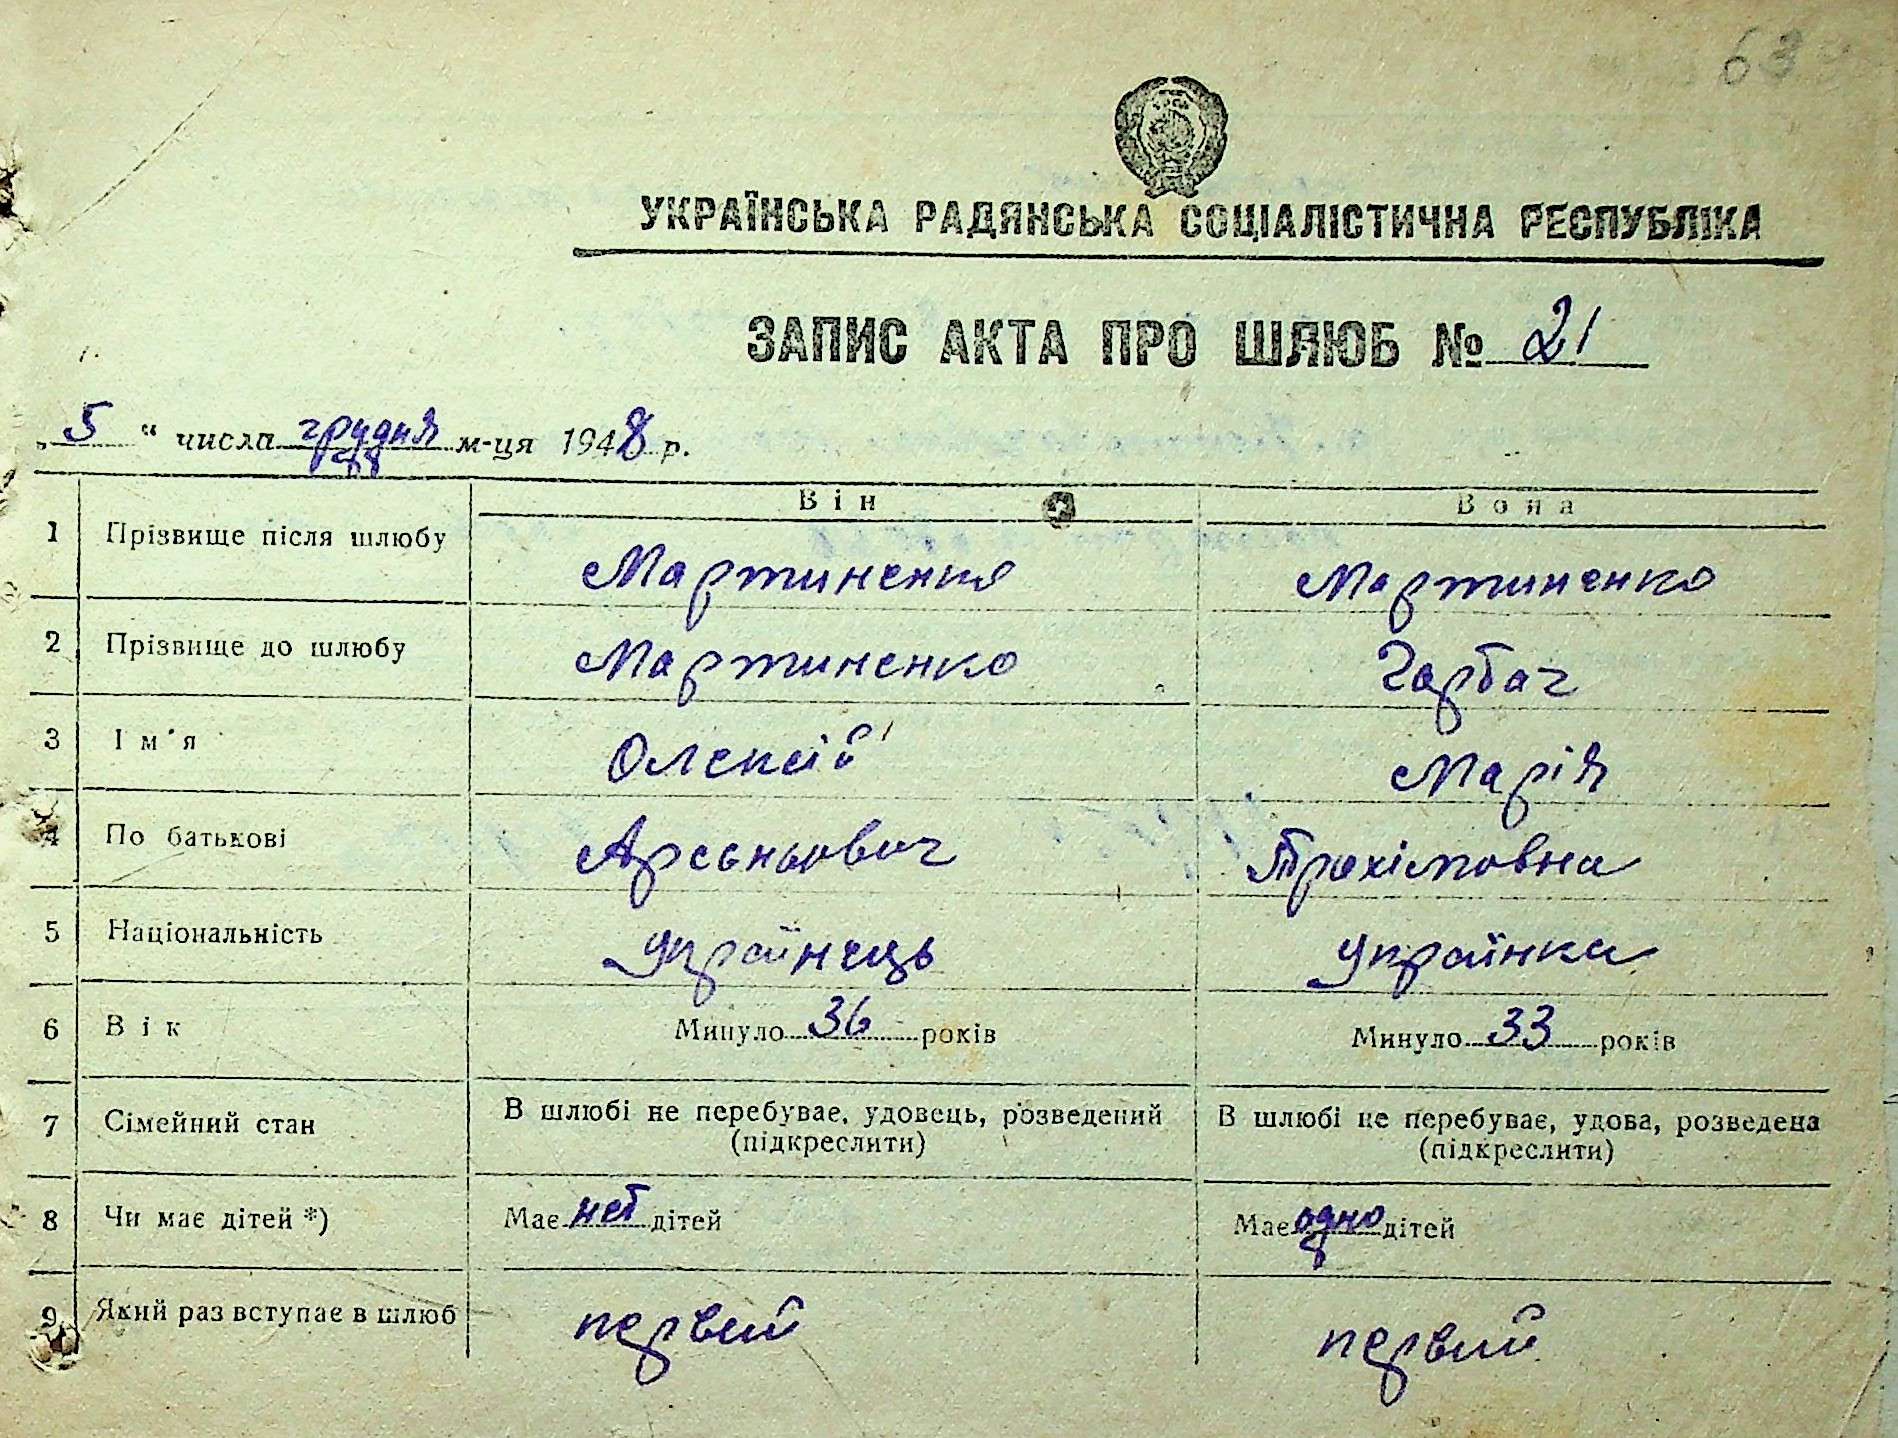 63
УКРАЇНСЬКА РАДЯНСЬКА СОЦІАЛІСТИЧНА РЕСПУБЛІКА
ЗАПИС АКТА ПРО ШЛЮБ № 21
„ 5 “ числа грудня м-ця 1948 р.
Він Вона
1 Прізвище після шлюбу Мартиненко Мартиненко
2 Прізвище до шлюбу Мартиненко Гарбач
3 Ім'я Олексій Марія
4 По батькові Арсеньович Трохімовна
5 Національність Українець Українка
6 Вік Минуло 36 років Минуло 33 років
7 Сімейний стан В шлюбі не перебуває, удовець, розведений В шлюбі не перебуває, удова, розведена
(підкреслити) (підкреслити)
8 Чи має дітей *) Має нет дітей Має одно дітей
9 Який раз вступає в шлюб первий первий